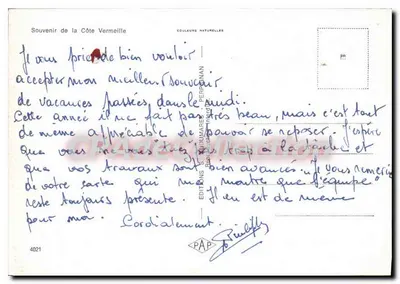 Souvenir de la Côte Vermeille
COULEURS NATURELLES
Je vous prie de bien vouloir
accepter mon meilleur souvenir
de vacances passées dans le midi.
Cette année il ne fait pas très beau, mais c'est tout
de meme appréciable de pouvoir se reposer. J'espère
que vous n'êtes pas trop à la tâche et
que vos travaux sont bien avancés. Je vous remercie
de votre carte qui me montre que "l'équipe"
reste toujours présente. Il en est de meme
pour moi. Cordialement.
4021
PAP